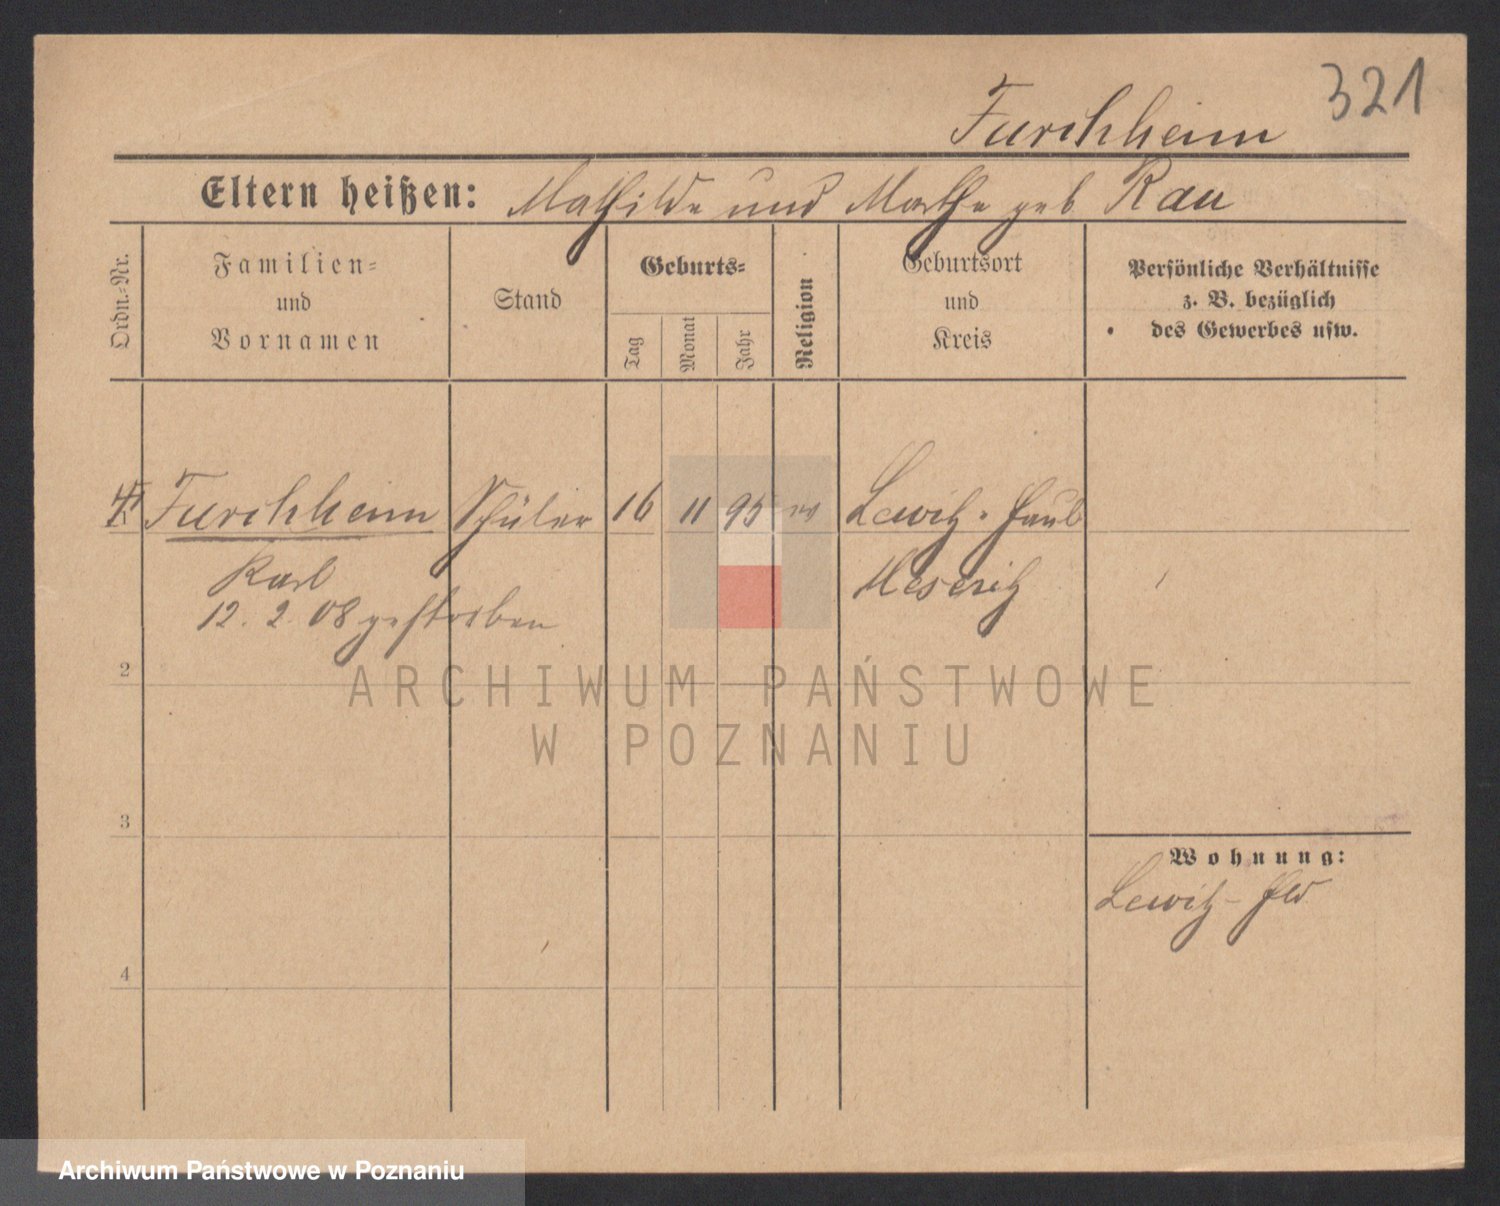 321
Furchheim
Eltern heißen: Mathilde und Marthe geb Rau
Ordn.-Nr.
Familien-
und
Vornamen
Stand
Geburts-
Tag
Monat
Jahr
Religion
Geburtsort
und
Kreis
Persönliche Verhältnisse
z. B. bezüglich
des Gewerbes usw.
Furchheim Schüler 16 11 95 ev Lewitz-Hauld
Karl Meseritz
12. 2. 08 gestorben
2
ARCHIWUM PAŃSTWOWE
W POZNANIU
3
Wohnung:
Lewitz-Hld
4
Archiwum Państwowe w Poznaniu